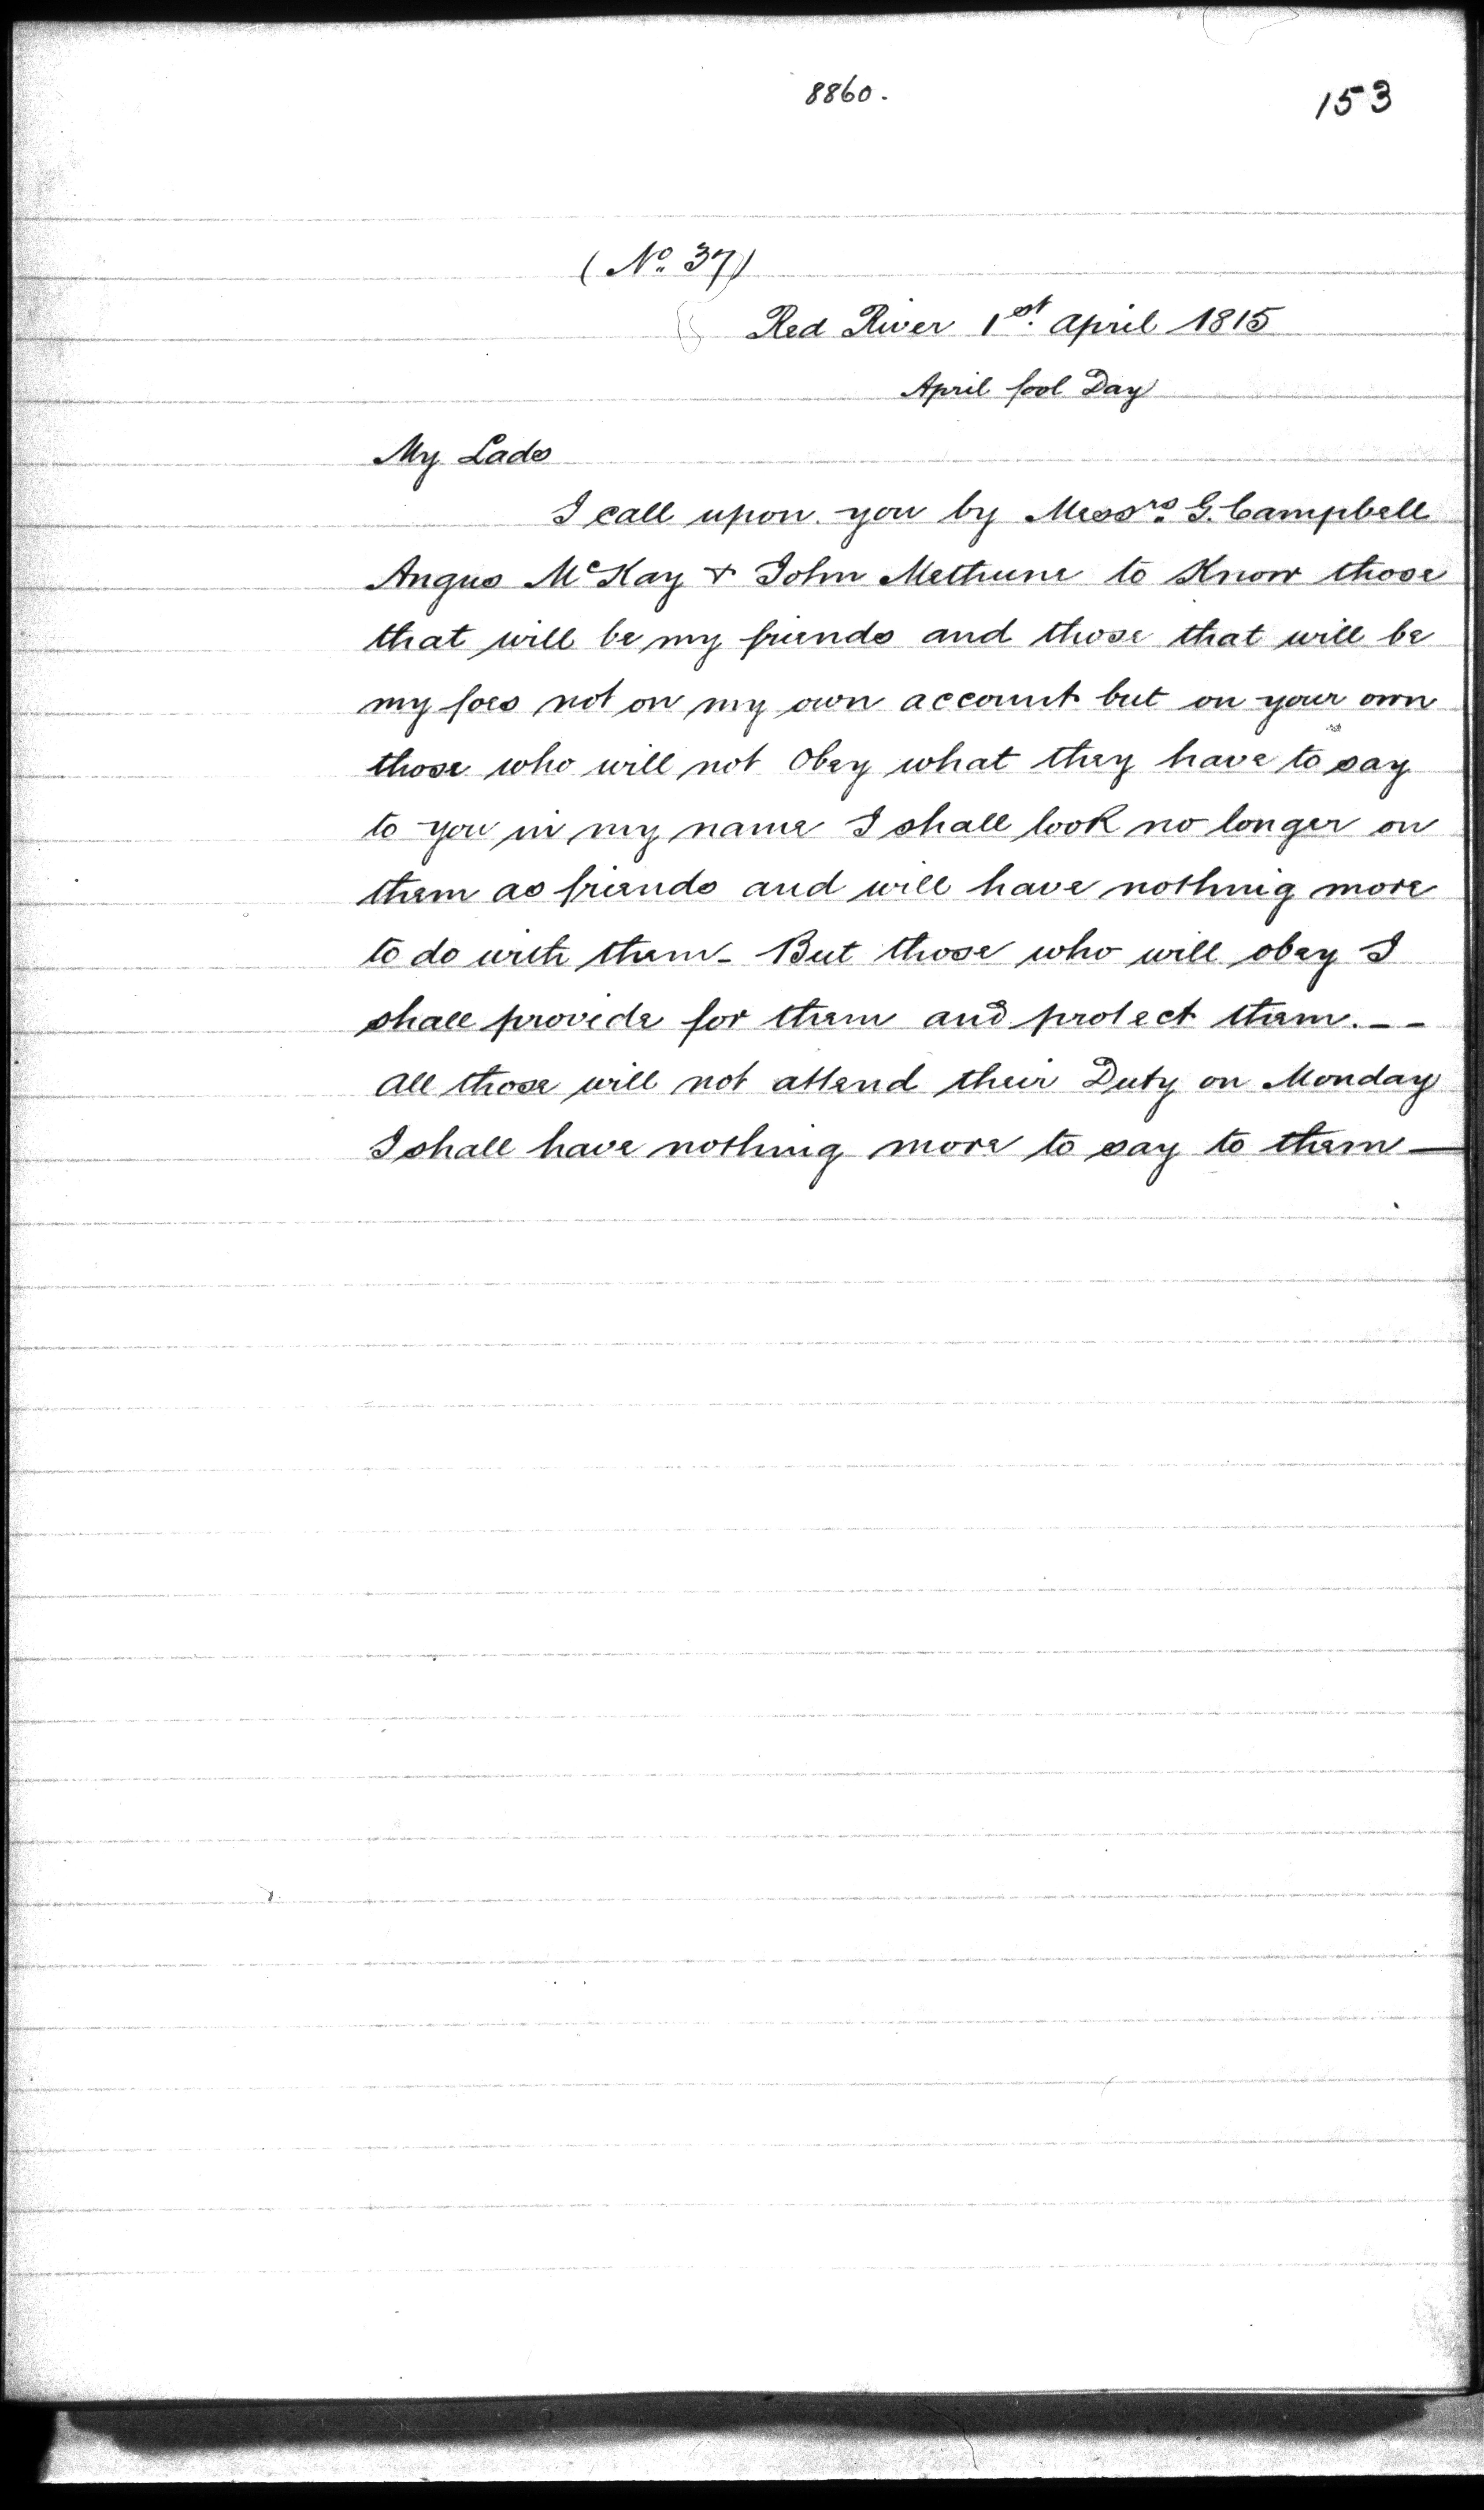 8860.
153
(No. 37)
Red River 1st. April 1815
April fool Day
My Lads
I call upon you by Messrs. G. Campbell
Angus McKay & John Methune to Know those
that will be my friends and those that will be
my foes not on my own account but on your own
those who will not Obey what they have to say
to you in my name I shall look no longer on
them as friends and will have nothing more
to do with them_ But those who will obey I
shall provide for them and protect them._ _
All those will not attend their Duty on Monday
I shall have nothing more to say to them —